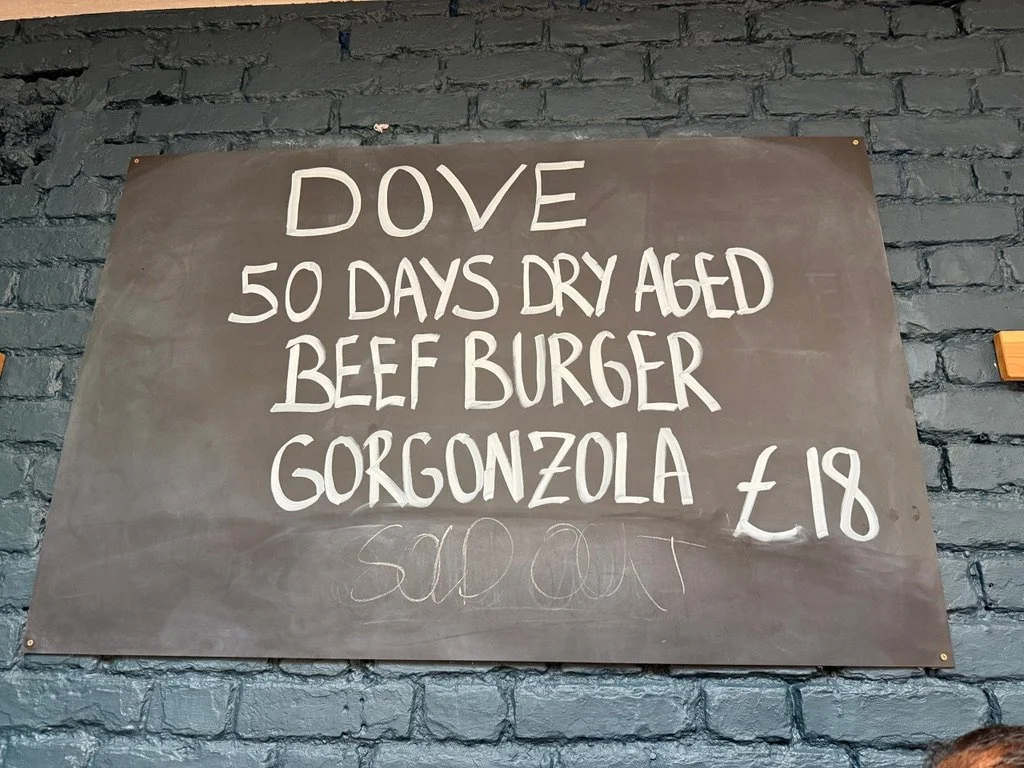 DOVE
50 DAYS DRY AGED
BEEF BURGER
GORGONZOLA £18
SOLD OUT